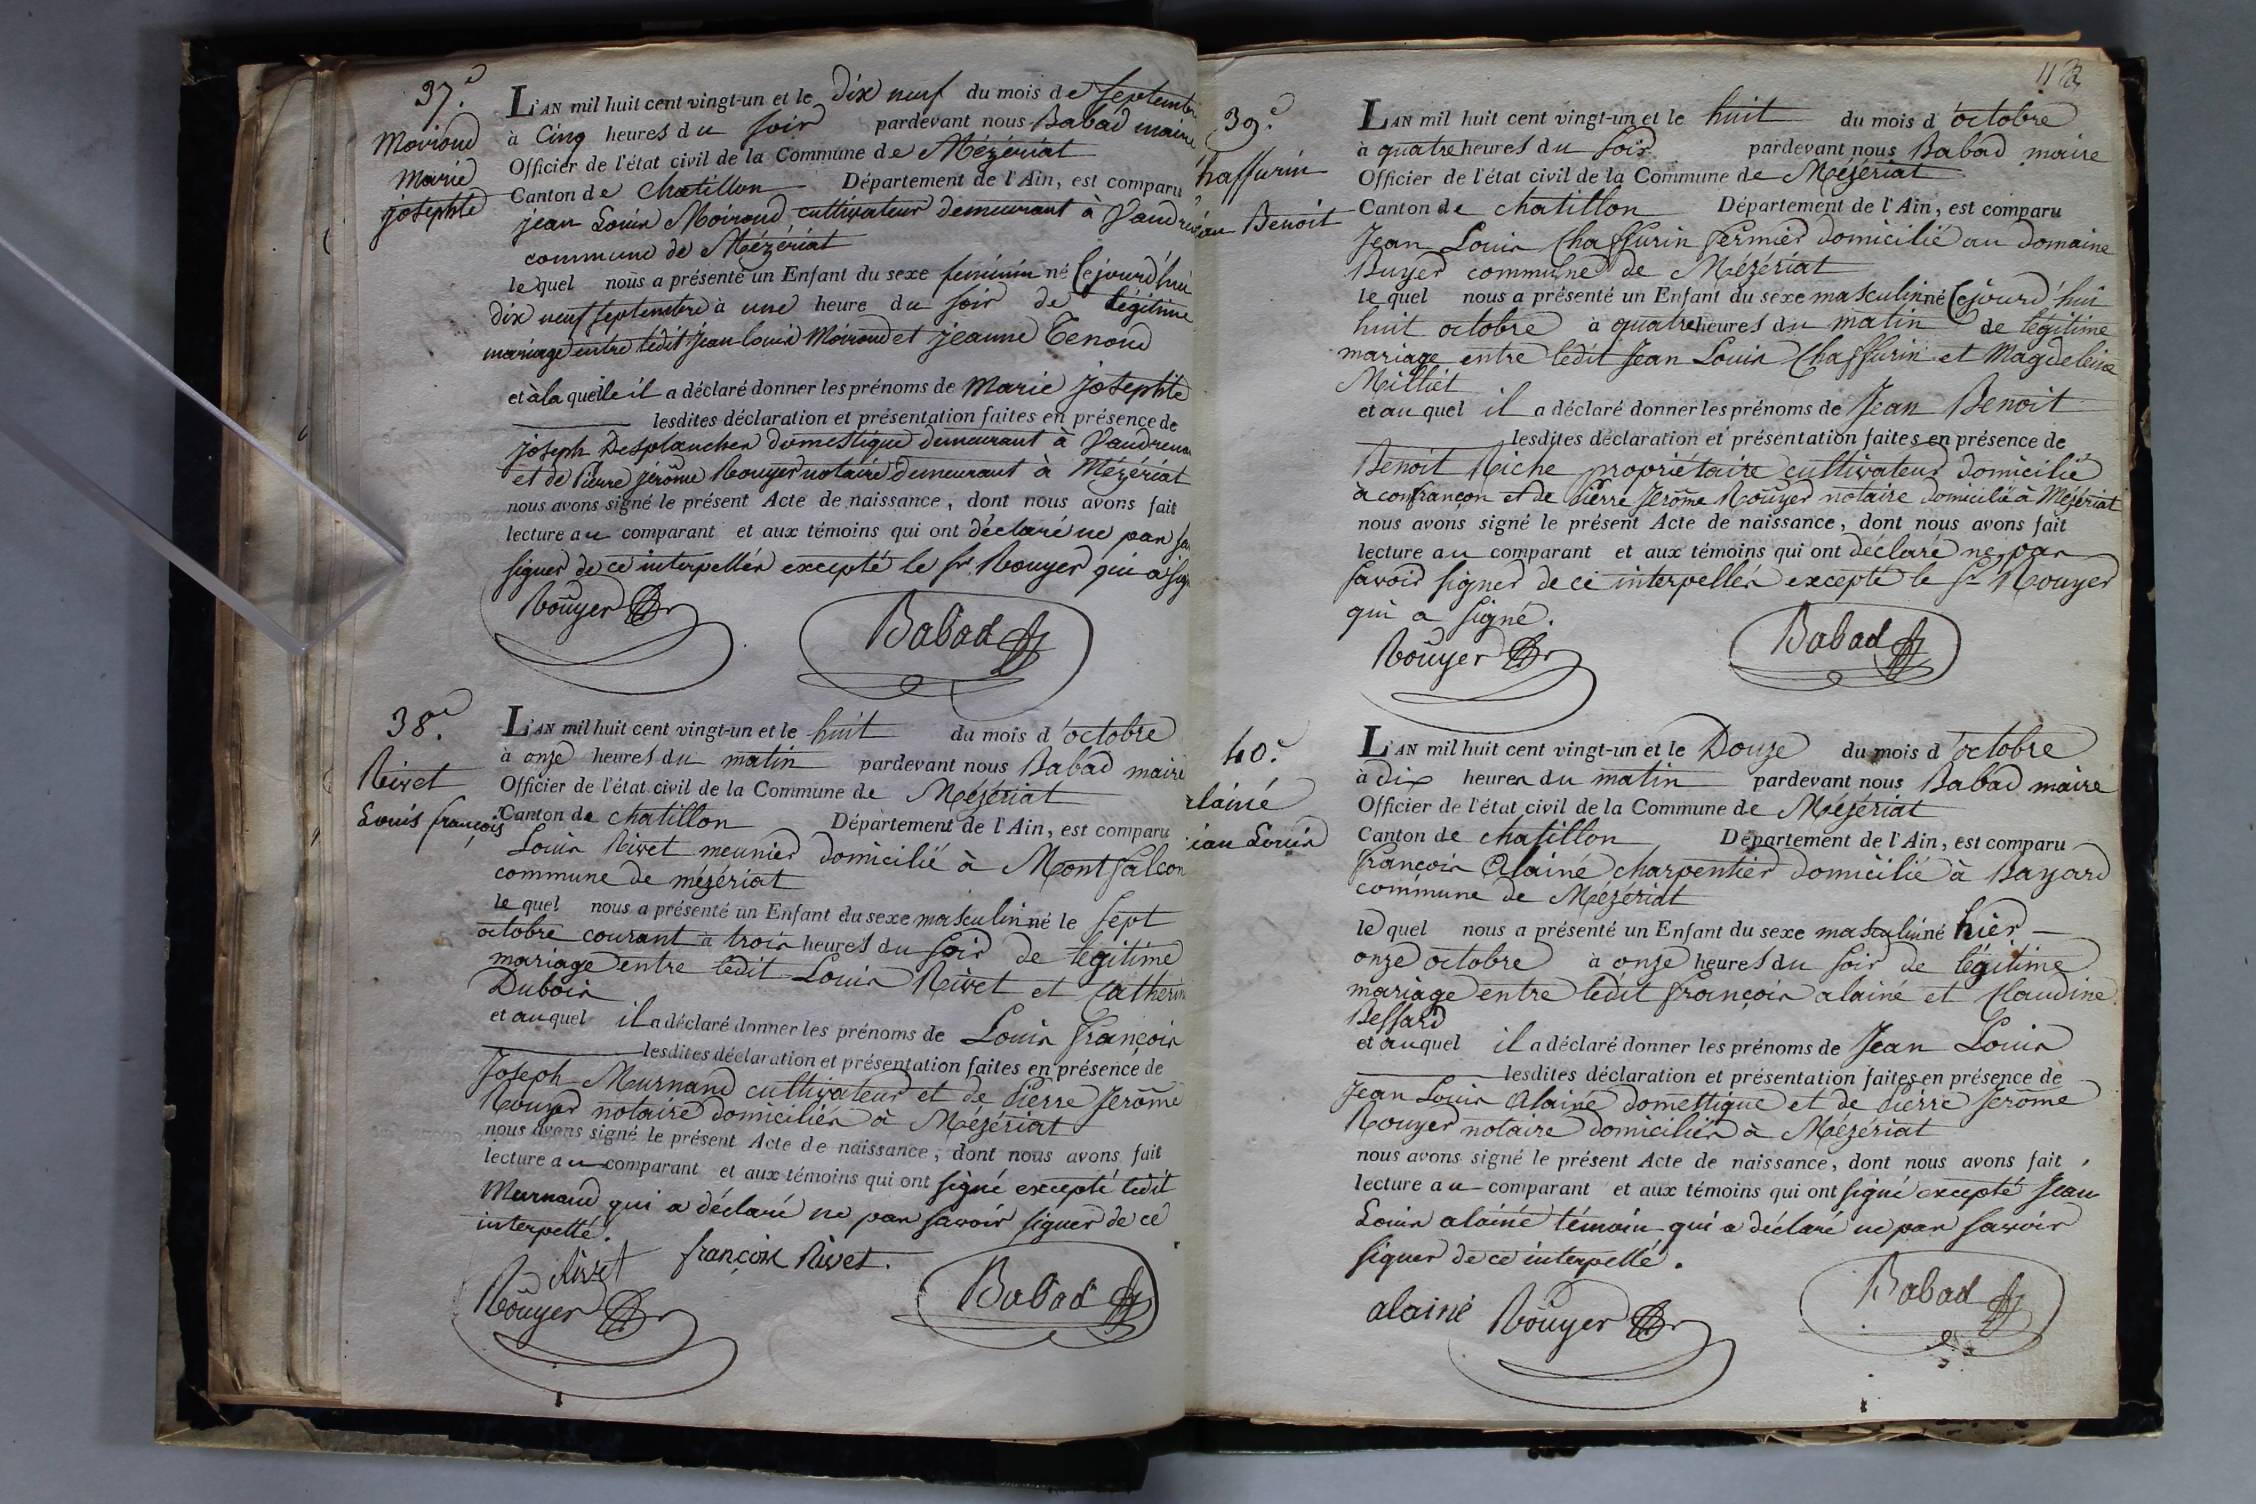 37.e
Moiroud
Marie
josephte
L'AN mil huit cent vingt-un et le dix neuf du mois de septembre
à Cinq heures du soir pardevant nous Babad maire
Officier de l'état civil de la Commune de Mézériat
Canton de chatillon Département de l'Ain, est comparu
jean Louis Moiroud cultivateur demeurant à
commune de Mézériat
le quel nous a présenté un Enfant du sexe féminin né Cejourd'hui
dix neuf septembre à une heure du soir de légitime
mariage entre ledit jean-louis Moiroud et jeanne Tenoud
et à la quelle il a déclaré donner les prénoms de Marie josephte
lesdites déclaration et présentation faites en présence de
joseph Desplanches domestique demeurant à
et de Pierre jérôme Rouyer notaire demeurant à Mézériat
nous avons signé le présent Acte de naissance, dont nous avons fait
lecture au comparant et aux témoins qui ont déclaré ne pas
signer de ce interpellés excepté le sr. Rouyer qui a
Rouyer
Babad
38.e
Rivet
Louis françois
L'AN mil huit cent vingt-un et le huit du mois d'octobre
à onze heures du matin pardevant nous Babad maire
Officier de l'état civil de la Commune de Mézériat
Canton de chatillon Département de l'Ain, est comparu
Louis Rivet meunier domicilié à Montfalcon
commune de mézériat
le quel nous a présenté un Enfant du sexe masculin né le sept
octobre courant à trois heures du soir de légitime
mariage entre ledit Louis Rivet et Catherin
Dubois
et au quel il a déclaré donner les prénoms de Louis françois
lesdites déclaration et présentation faites en présence de
Joseph Murnand cultivateur et de Pierre Jerôme
Rouyer notaire domiciliés à Mézériat
nous avons signé le présent Acte de naissance, dont nous avons fait
lecture au comparant et aux témoins qui ont signé excepté ledit
Murnand qui a déclaré ne pas savoir signer de ce
interpellé.
Rivet françois Rivet.
Rouyer
Babad
39.e
haffurin
Benoit
L'AN mil huit cent vingt-un et le huit du mois d'octobre
à quatre heures du soir pardevant nous Babad maire
Officier de l'état civil de la Commune de Mézériat
Canton de chatillon Département de l'Ain, est comparu
Jean Louis Chaffurin fermier domicilié au domaine
Buyer commune de Mézériat
le quel nous a présenté un Enfant du sexe masculin né Cejourd'hui
huit octobre à quatre heures du matin de légitime
mariage entre ledit Jean Louis Chaffurin et Magdeleine
Milliet
et au quel il a déclaré donner les prénoms de Jean Benoit
lesdites déclaration et présentation faites en présence de
Benoit Riche propriétaire cultivateur domicilié
à confrançon et de Pierre Jerôme Rouyer notaire domicilié à Mézériat
nous avons signé le présent Acte de naissance, dont nous avons fait
lecture au comparant et aux témoins qui ont déclaré ne pas
savoir signer de ce interpellés excepté le Sr Rouyer
qui a signé.
Rouyer
Babad
40.e
alainé
jean Louis
L'AN mil huit cent vingt-un et le Douze du mois d'octobre
à dix heures du matin pardevant nous Babad maire
Officier de l'état civil de la Commune de Mézériat
Canton de chatillon Département de l'Ain, est comparu
françois Alainé charpentier domicilié à Bayard
commune de Mézériat
le quel nous a présenté un Enfant du sexe masculin né hier
onze octobre à onze heures du soir de légitime
mariage entre ledit françois alainé et Claudine
Bessard
et au quel il a déclaré donner les prénoms de Jean Louis
lesdites déclaration et présentation faites en présence de
Jean Louis Alainé domestique et de Pierre Jerôme
Rouyer notaire domiciliés à Mézériat
nous avons signé le présent Acte de naissance, dont nous avons fait
lecture au comparant et aux témoins qui ont signé excepté Jean
Louis alainé témoin qui a déclaré ne pas savoir
signer de ce interpellé.
alainé Rouyer
Babad